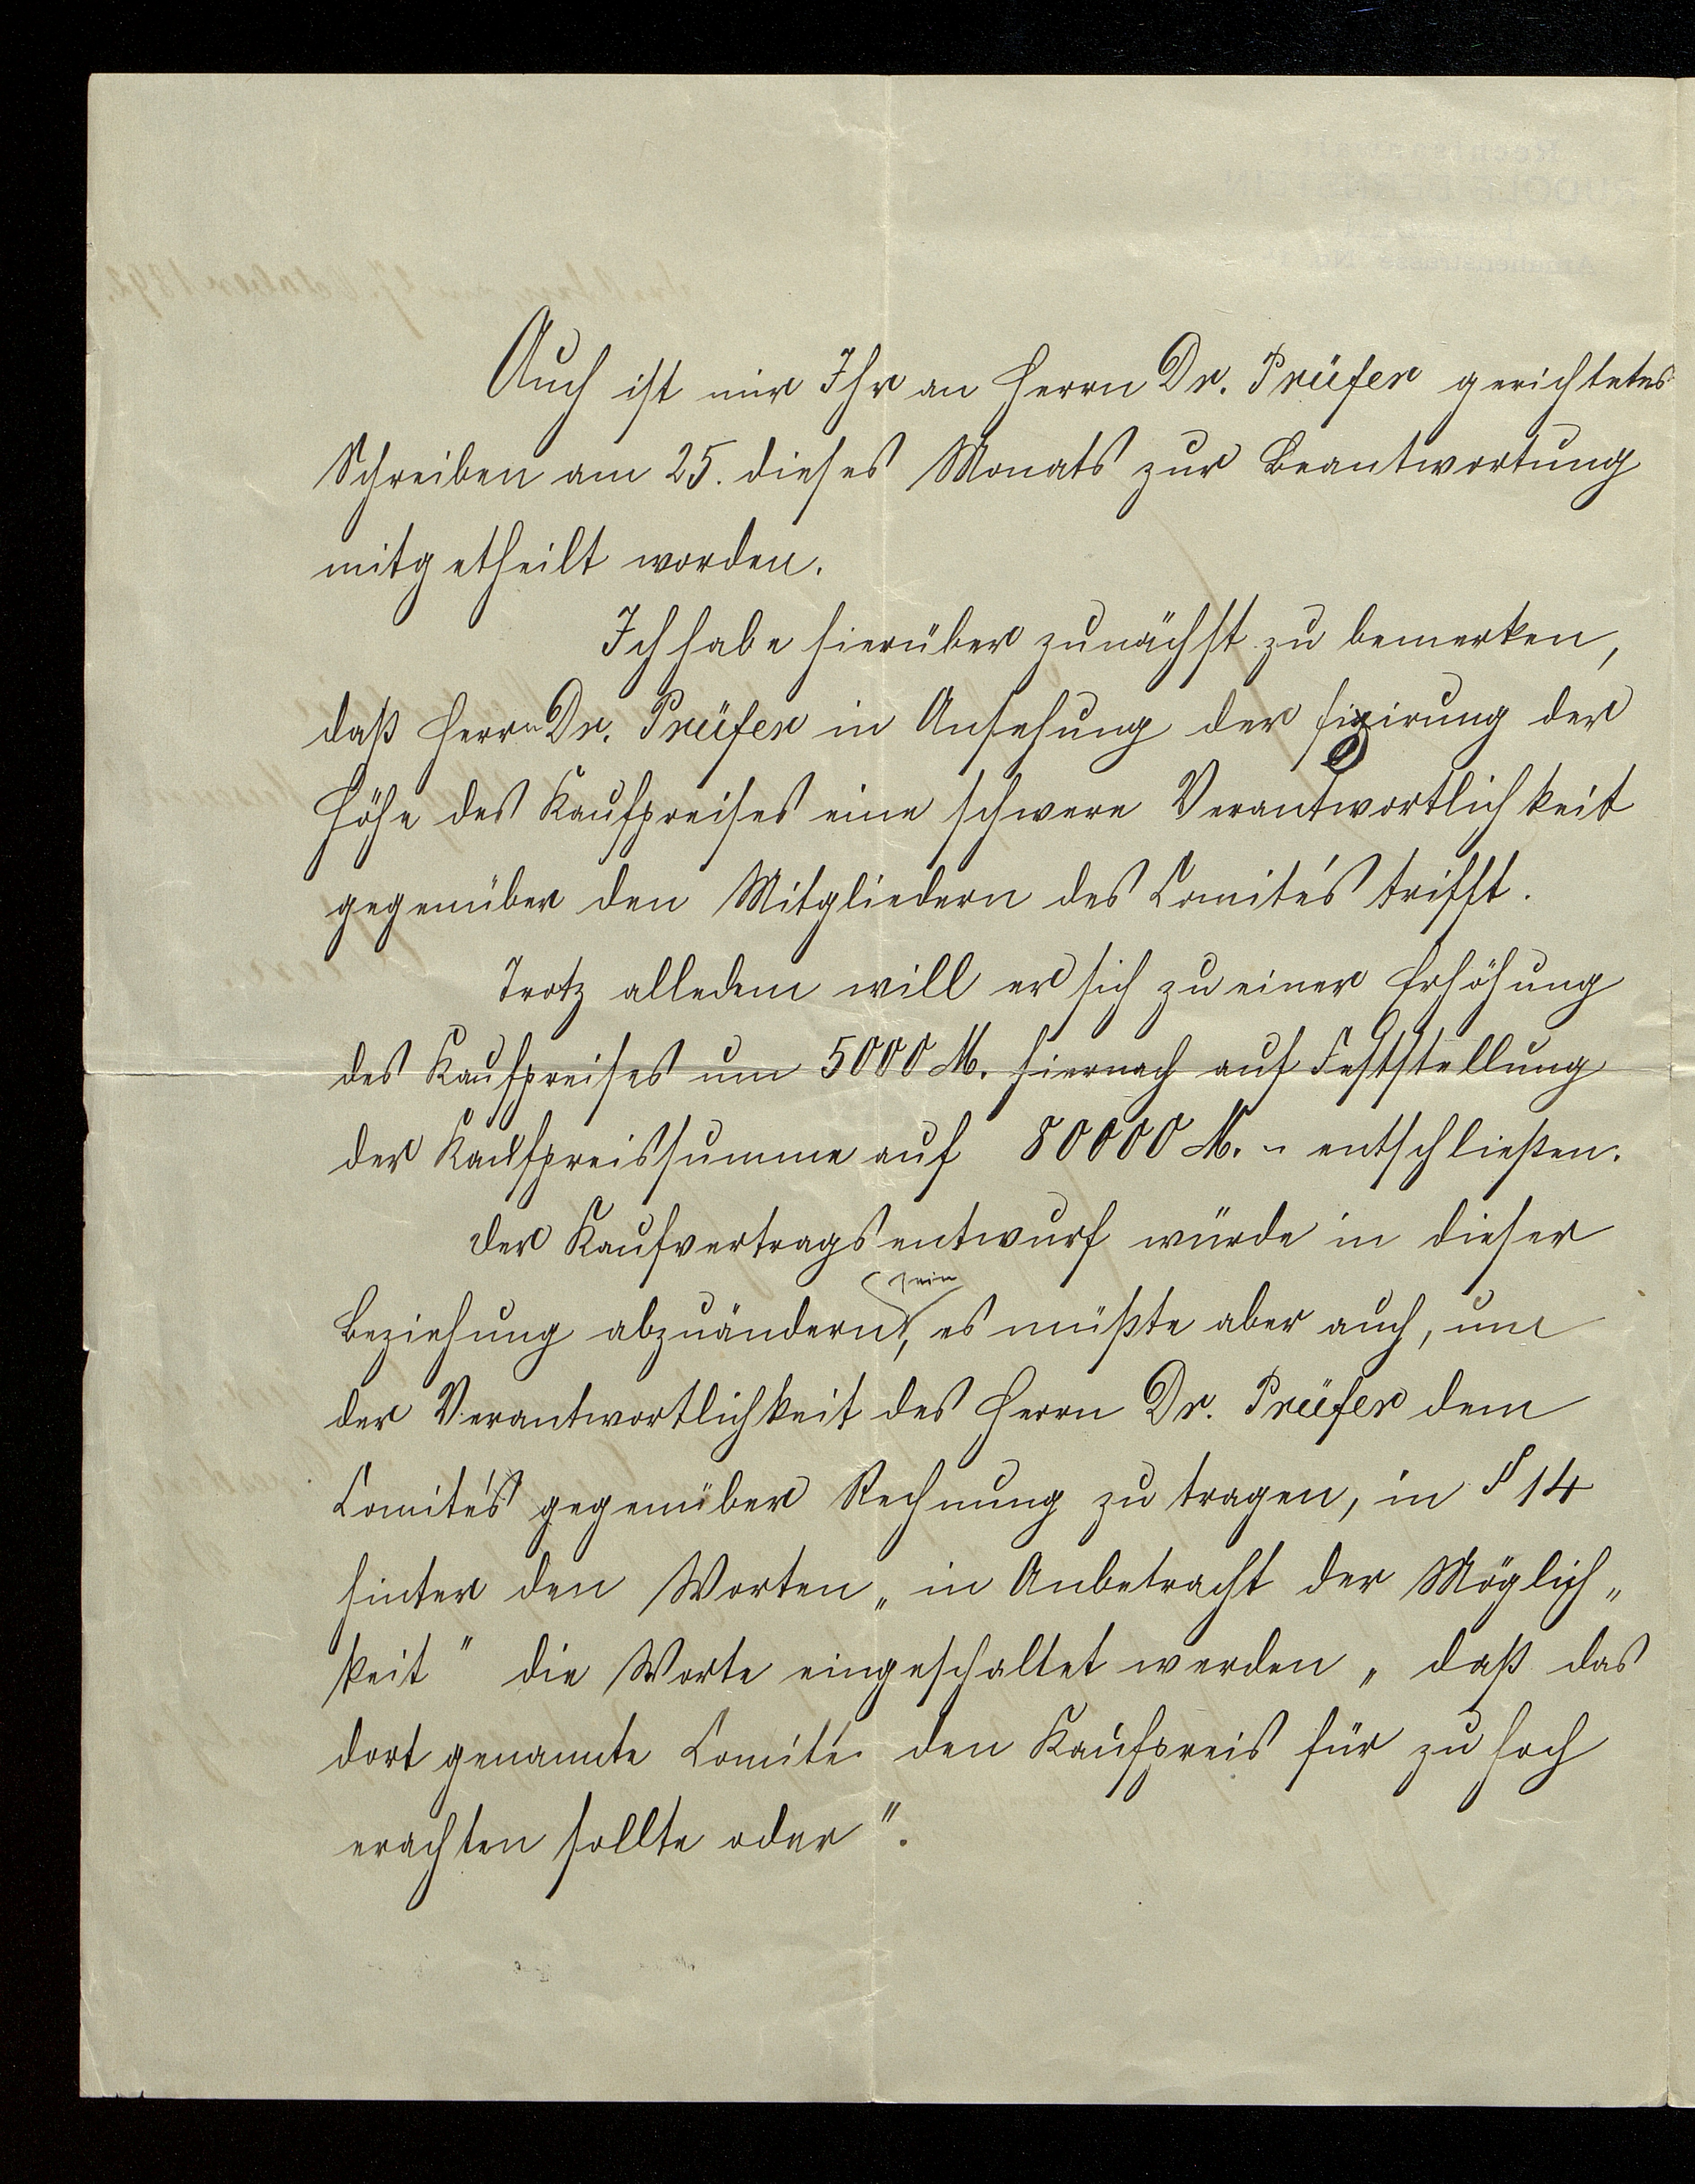 Auch ist mir Ihr an Herrn Dr. Prüfer gerichtetes
Schreiben am 25. dieses Monats zur Beantwortung
mitgetheilt worden.
Ich habe hierüber zunächst zu bemerken,
daß Herrn Dr. Prüfer in Ansehung der Fixirung der
Höhe des Kaufpreises eine schwere Verantwortlichkeit
gegenüber den Mitgliedern des Comités trifft.
Trotz alledem will er sich zu einer Erhöhung
des Kaufpreises um 5000 M. hiernach auf Feststellung
der Kaufpreissumme auf 80000 M. - entschließen.
Der Kaufvertragsentwurf würde in dieser
sein
Beziehung abzuändern, es müßte aber auch, um
der Verantwortlichkeit des Herrn Dr. Prüfer dem
Comités gegenüber Rechnung zu tragen, in § 14
hinter den Worten „in Anbetracht der Möglich„
keit" die Worte eingeschaltet werden „daß das
dort genannte Comité den Kaufpreis für zu hoch
erachten sollte oder".